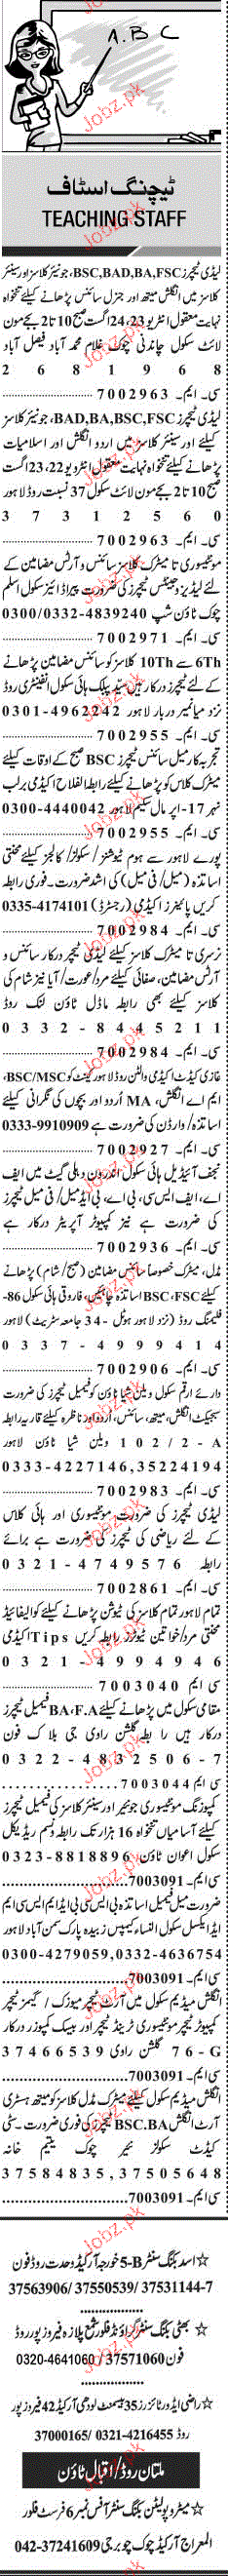 A.B C
ٹیچنگ اسٹاف
TEACHING STAFF
لیڈی ٹیچرز BSC,BAD,BA,FSC، جونیئر کلاسز اور سینئر
کلاسز میں انگلش میتھ اور جنرل سائنس پڑھانے کیلئے تنخواہ
نہایت معقول انٹرویو 23، 24 اگست صبح 10 تا 2 بجے مون
لائٹ سکول چاندنی چوک غلام محمد آباد فیصل آباد
2 6 8 1 9 6 8
سی۔ ایم۔ 7002963
لیڈی ٹیچرز BAD,BA,BSC,FSC، جونیئر کلاسز
کیلئے اور سینئر کلاسز میں اردو انگلش اور اسلامیات
پڑھانے کیلئے تنخواہ نہایت معقول انٹرویو 22، 23 اگست
صبح 10 تا 2 بجے مون لائٹ سکول 37 نسبت روڈ لاہور
3 7 3 1 2 5 6 0
سی۔ ایم۔ 7002963
مونٹیسوری تا میٹرک کلاسز سائنس و آرٹس مضامین کے
لئے لیڈیز و جینٹس ٹیچرز کی ضرورت پیراڈائیز سکول اسلم
چوک ٹاؤن شپ 0300/0332-4839240
سی۔ ایم۔ 7002971
6Th سے 10Th کلاسز کو سائنس مضامین پڑھانے
کے لئے ٹیچرز درکار ہیں پبلک ہائی سکول انفینٹری روڈ
نزد میانمیر دربار لاہور 0301-4962242
سی۔ ایم۔ 7002955
تجربہ کار میل سائنس ٹیچرز BSC صبح کے اوقات کیلئے
میٹرک کلاس کو پڑھانے کیلئے رابطہ الفلاح اکیڈمی برلب
نہر 17- اپر مال سکیم لاہور 0300-4440042
سی۔ ایم۔ 7002955
پورے لاہور سے ہوم ٹیوشنز / سکولز / کالجز کیلئے محنتی
اساتذہ (میل / فی میل) کی اشد ضرورت۔ فوری رابطہ
کریں پائینرز اکیڈمی (رجسٹرڈ) 0335-4174101
سی۔ ایم۔ 7002984
نرسری تا میٹرک کلاسز کیلئے ٹیچرز درکار سائنس و
آرٹس مضامین، صفائی کیلئے مرد / عورت / آیا نیز شام کی
کلاسز کیلئے بھی رابطہ ماڈل ٹاؤن لنک روڈ
0 3 3 2 - 8 4 4 5 2 1 1
سی۔ ایم۔ 7002984
غازی کیڈٹ اکیڈمی والٹن روڈ لاہور کینٹ کو BSC/MSC،
ایم اے انگلش، MA اردو اور بچوں کی نگرانی کیلئے
اساتذہ / وارڈن کی ضرورت ہے 0333-9910909
سی۔ ایم۔ 7002927
نجف آئیڈیل ہائی سکول اندرون دہلی گیٹ میں ایف
اے، ایف ایس سی، بی اے، بی ایڈ میل / فی میل ٹیچرز
کی ضرورت ہے نیز کمپیوٹر آپریٹر درکار ہے
سی۔ ایم۔ 7002936
مڈل، میٹرک خصوصاً سائنس مضامین (صبح / شام) پڑھانے
کیلئے BSC،FSC اساتذہ چاہئیں، فاروقی ہائی سکول 86-
فلیمنگ روڈ (نزد لاہور ہوٹل - 34 جامعہ سٹریٹ) لاہور
0 3 3 7 - 4 9 9 9 4 1 4
سی۔ ایم۔ 7002906
دار ارقم سکول ویلن شیا ٹاؤن کو فیمیل ٹیچرز کی ضرورت
سبجیکٹ انگلش، میتھ، سائنس، اردو اور ناظرہ کیلئے قاریہ رابطہ
A - 2 / 1 0 2 ویلن شیا ٹاؤن لاہور
0333-4227146,35224194
سی۔ ایم۔ 7002983
لیڈی ٹیچرز کی ضرورت مونٹیسوری اور ہائی کلاس
کے لئے ریاضی کی ٹیچرز کی ضرورت ہے برائے
رابطہ 0 3 2 1 - 4 7 4 9 5 7 6
سی۔ ایم۔ 7002861
تمام لاہور تمام کلاسز کی ٹیوشن پڑھانے کیلئے کوالیفائیڈ
محنتی مرد / خواتین ٹیوٹرز رابطہ کریں Tips اکیڈمی
0 3 2 1 - 4 9 9 4 9 4 6
سی ایم 7003040
مقامی سکول میں پڑھانے کیلئے BA،F.A فیمیل ٹیچرز
درکار ہیں رابطہ گلشن راوی جی بلاک فون
0 3 2 2 - 4 8 3 2 5 0 6 - 7
سی ایم 7003044
کمپوزنگ مونٹیسوری جونیئر اور سینئر کلاسز کی فیمیل ٹیچرز
کیلئے آسامیاں تنخواہ 16 ہزار تک رابطہ وسم ریڈیکل
سکول اعوان ٹاؤن 0323-8818896
سی ایم۔ 7003091
ضرورت میل فیمیل اساتذہ بی ایس سی بی ایڈ ایم ایس سی ایم
ایڈ ایکسل سکول النساء کیمپس زبیدہ پارک سمن آباد لاہور
0300-4279059,0332-4636754
سی ایم۔ 7003091
انگلش میڈیم سکول میں آرٹ ٹیچر میوزک / گیمز ٹیچر
کمپیوٹر ٹیچر مونٹیسوری ٹرینڈ ٹیچر اور بیسک کمپوزر درکار
G - 7 6 گلشن راوی 3 7 4 6 6 5 3 9
سی ایم۔ 7003091
انگلش میڈیم سکول کیلئے میٹرک مڈل کلاسز کو میتھ ہسٹری
آرٹ انگلش BSC.BA ٹیچرز کی فوری ضرورت۔ سٹی
کیڈٹ سکولز نیئر چوک یتیم خانہ
3 7 5 8 4 8 3 5 , 3 7 5 0 5 6 4 8
سی ایم۔ 7003091
☆ اسد بکنگ سنٹر 5-B خورجہ آرکیڈ وحدت روڈ فون
37563906/ 37550539/ 37531144-7
☆ بھٹی بکنگ سنٹر گراؤنڈ فلور شمع پلازہ فیروز پور روڈ
فون 37571060/ 0320-4641060
☆ راضی ایڈورٹائزرز 35 بیسمنٹ لودھی آرکیڈ 42 فیروز پور
روڈ 0321-4216455/ 37000165
ملتان روڈ / اقبال ٹاؤن
☆ میٹرو پولیٹن بکنگ سنٹر آفس نمبر 6 فرسٹ فلور
المعراج آرکیڈ چوک چوبرجی 042-37241609